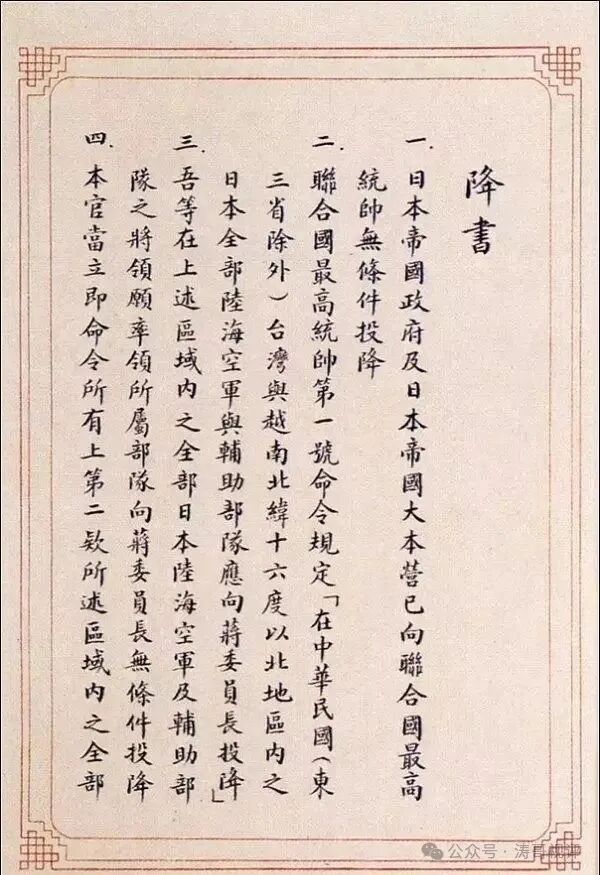 降書
一. 日本帝國政府及日本帝國大本營已向聯合國最高
統帥無條件投降
二. 聯合國最高統帥第一號命令規定「在中華民國（東
三省除外）台灣與越南北緯十六度以北地區內之
日本全部陸海空軍與輔助部隊應向蔣委員長投降」
三. 吾等在上述區域內之全部日本陸海空軍及輔助部
隊之將領願率領所屬部隊向蔣委員長無條件投降
四. 本官當立即命令所有上第二款所述區域內之全部
公众号·涛